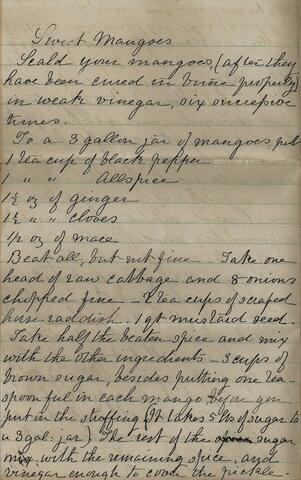 Sweet Mangoes
Scald your mangoes, (after they
have been cured in brine properly)
in weak vinegar, six successive
times.
To a 3 gallon jar of mangoes put
1 tea cup of black pepper
1 " " Allspice
1½ oz of ginger
1½ " " cloves
½ oz of mace
Beat all, but not fine. Take one
head of raw cabbage and 8 onions
chopped fine - 2 tea cups of scraped
horse raddish. 1 qt mustard seed.
Take half the beaten spice and mix
with the other ingredients - 3 cups of
brown sugar, besides putting one tea-
spoonful in each mango before you
put in the stuffing (It takes 5 lbs of sugar to
a 3 gal: jar) The rest of the sugar
mix, with the remaining spice, and
vinegar enough to cover the pickle.